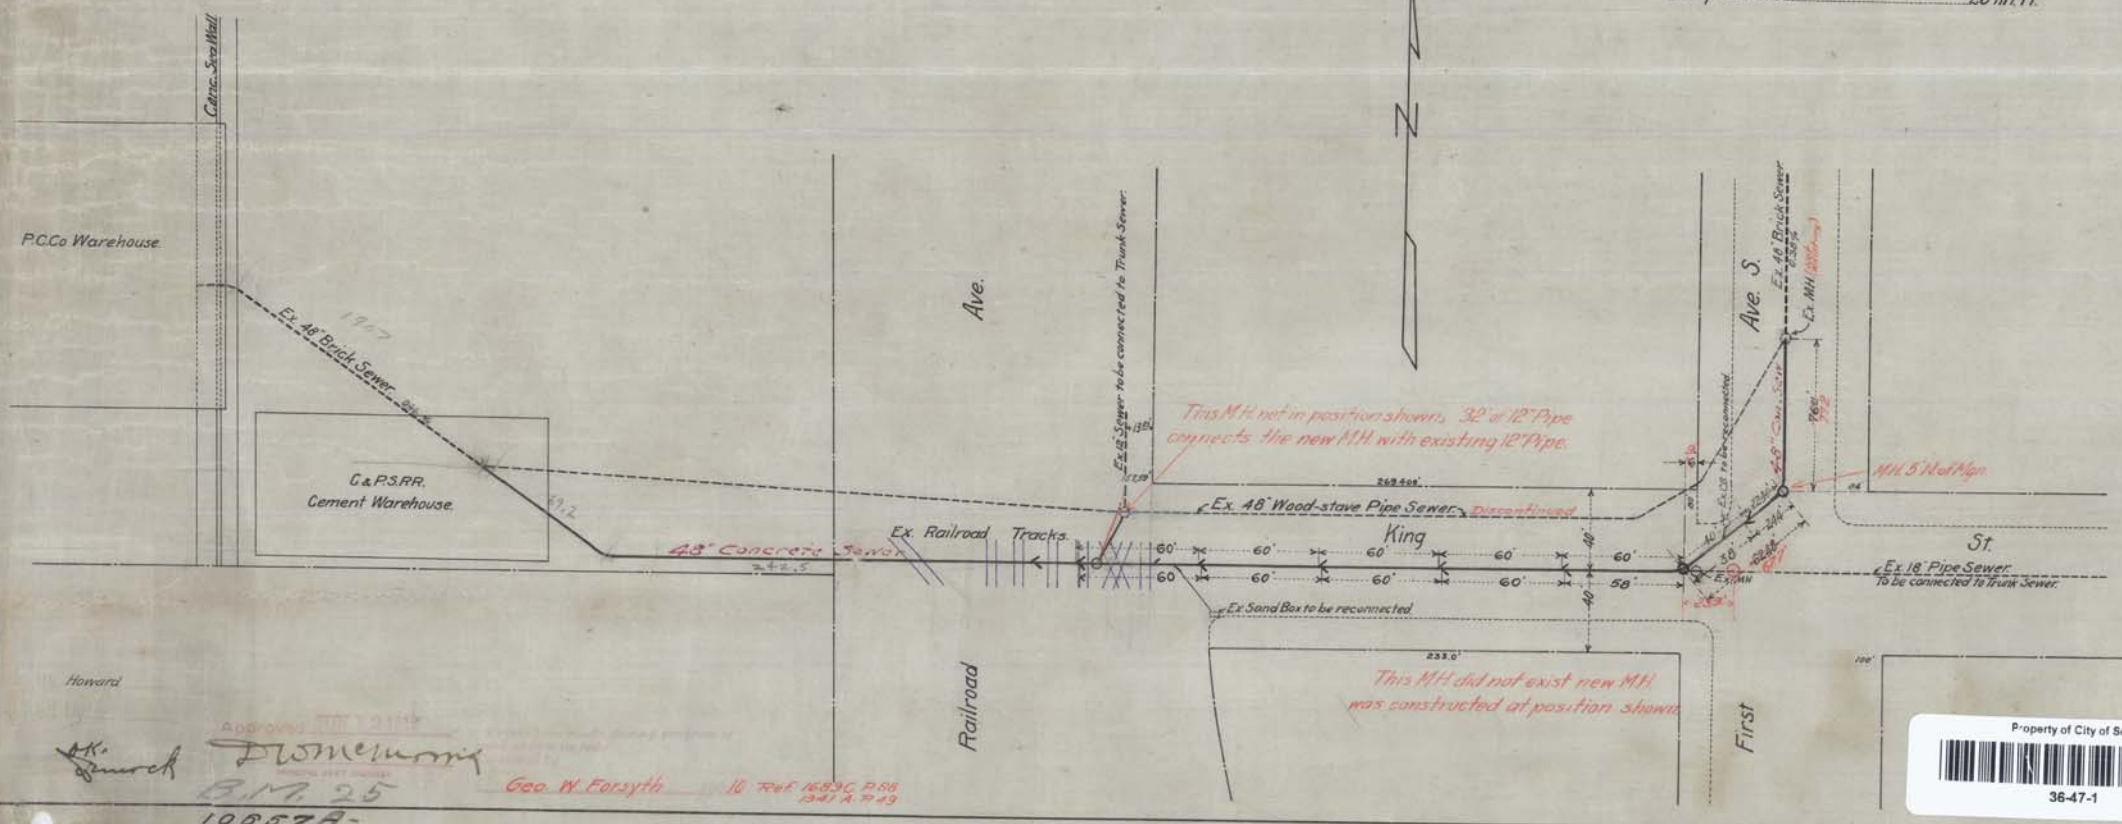 Conc. Sea Wall
P.C.Co Warehouse.
Ex. 48" Brick Sewer
1907
C. & P.S.RR.
Cement Warehouse.
69.2
48" Concrete Sewer
242.5
Ex. Railroad Tracks
Railroad
Ave.
Ex 12" Sewer to be connected to Trunk Sewer.
This M.H. not in position shown, 32' of 12" Pipe
connects the new M.H. with existing 12" Pipe.
N
269.408'
Ex. 48" Wood-stave Pipe Sewer. Discontinued
King
St.
60' 60' 60' 60' 60'
60' 60' 60' 60' 58'
40'
40'
Ex Sand Box to be reconnected
233.0'
This M.H. did not exist new M.H.
was constructed at position shown
First
Ave. S.
Ex. 48" Brick Sewer.
Ex. MH
48" Con. Sew
M.H. 5' N. of Mgn
Ex CB to be reconnected
Ex. MH
Ex 18" Pipe Sewer.
To be connected to Trunk Sewer.
100'
Howard
Approved
O.K.
B.M. 25
Geo. W. Forsyth
10 Ref 1689C P.88
1941 A. P.49
Property of City of Se
36-47-1